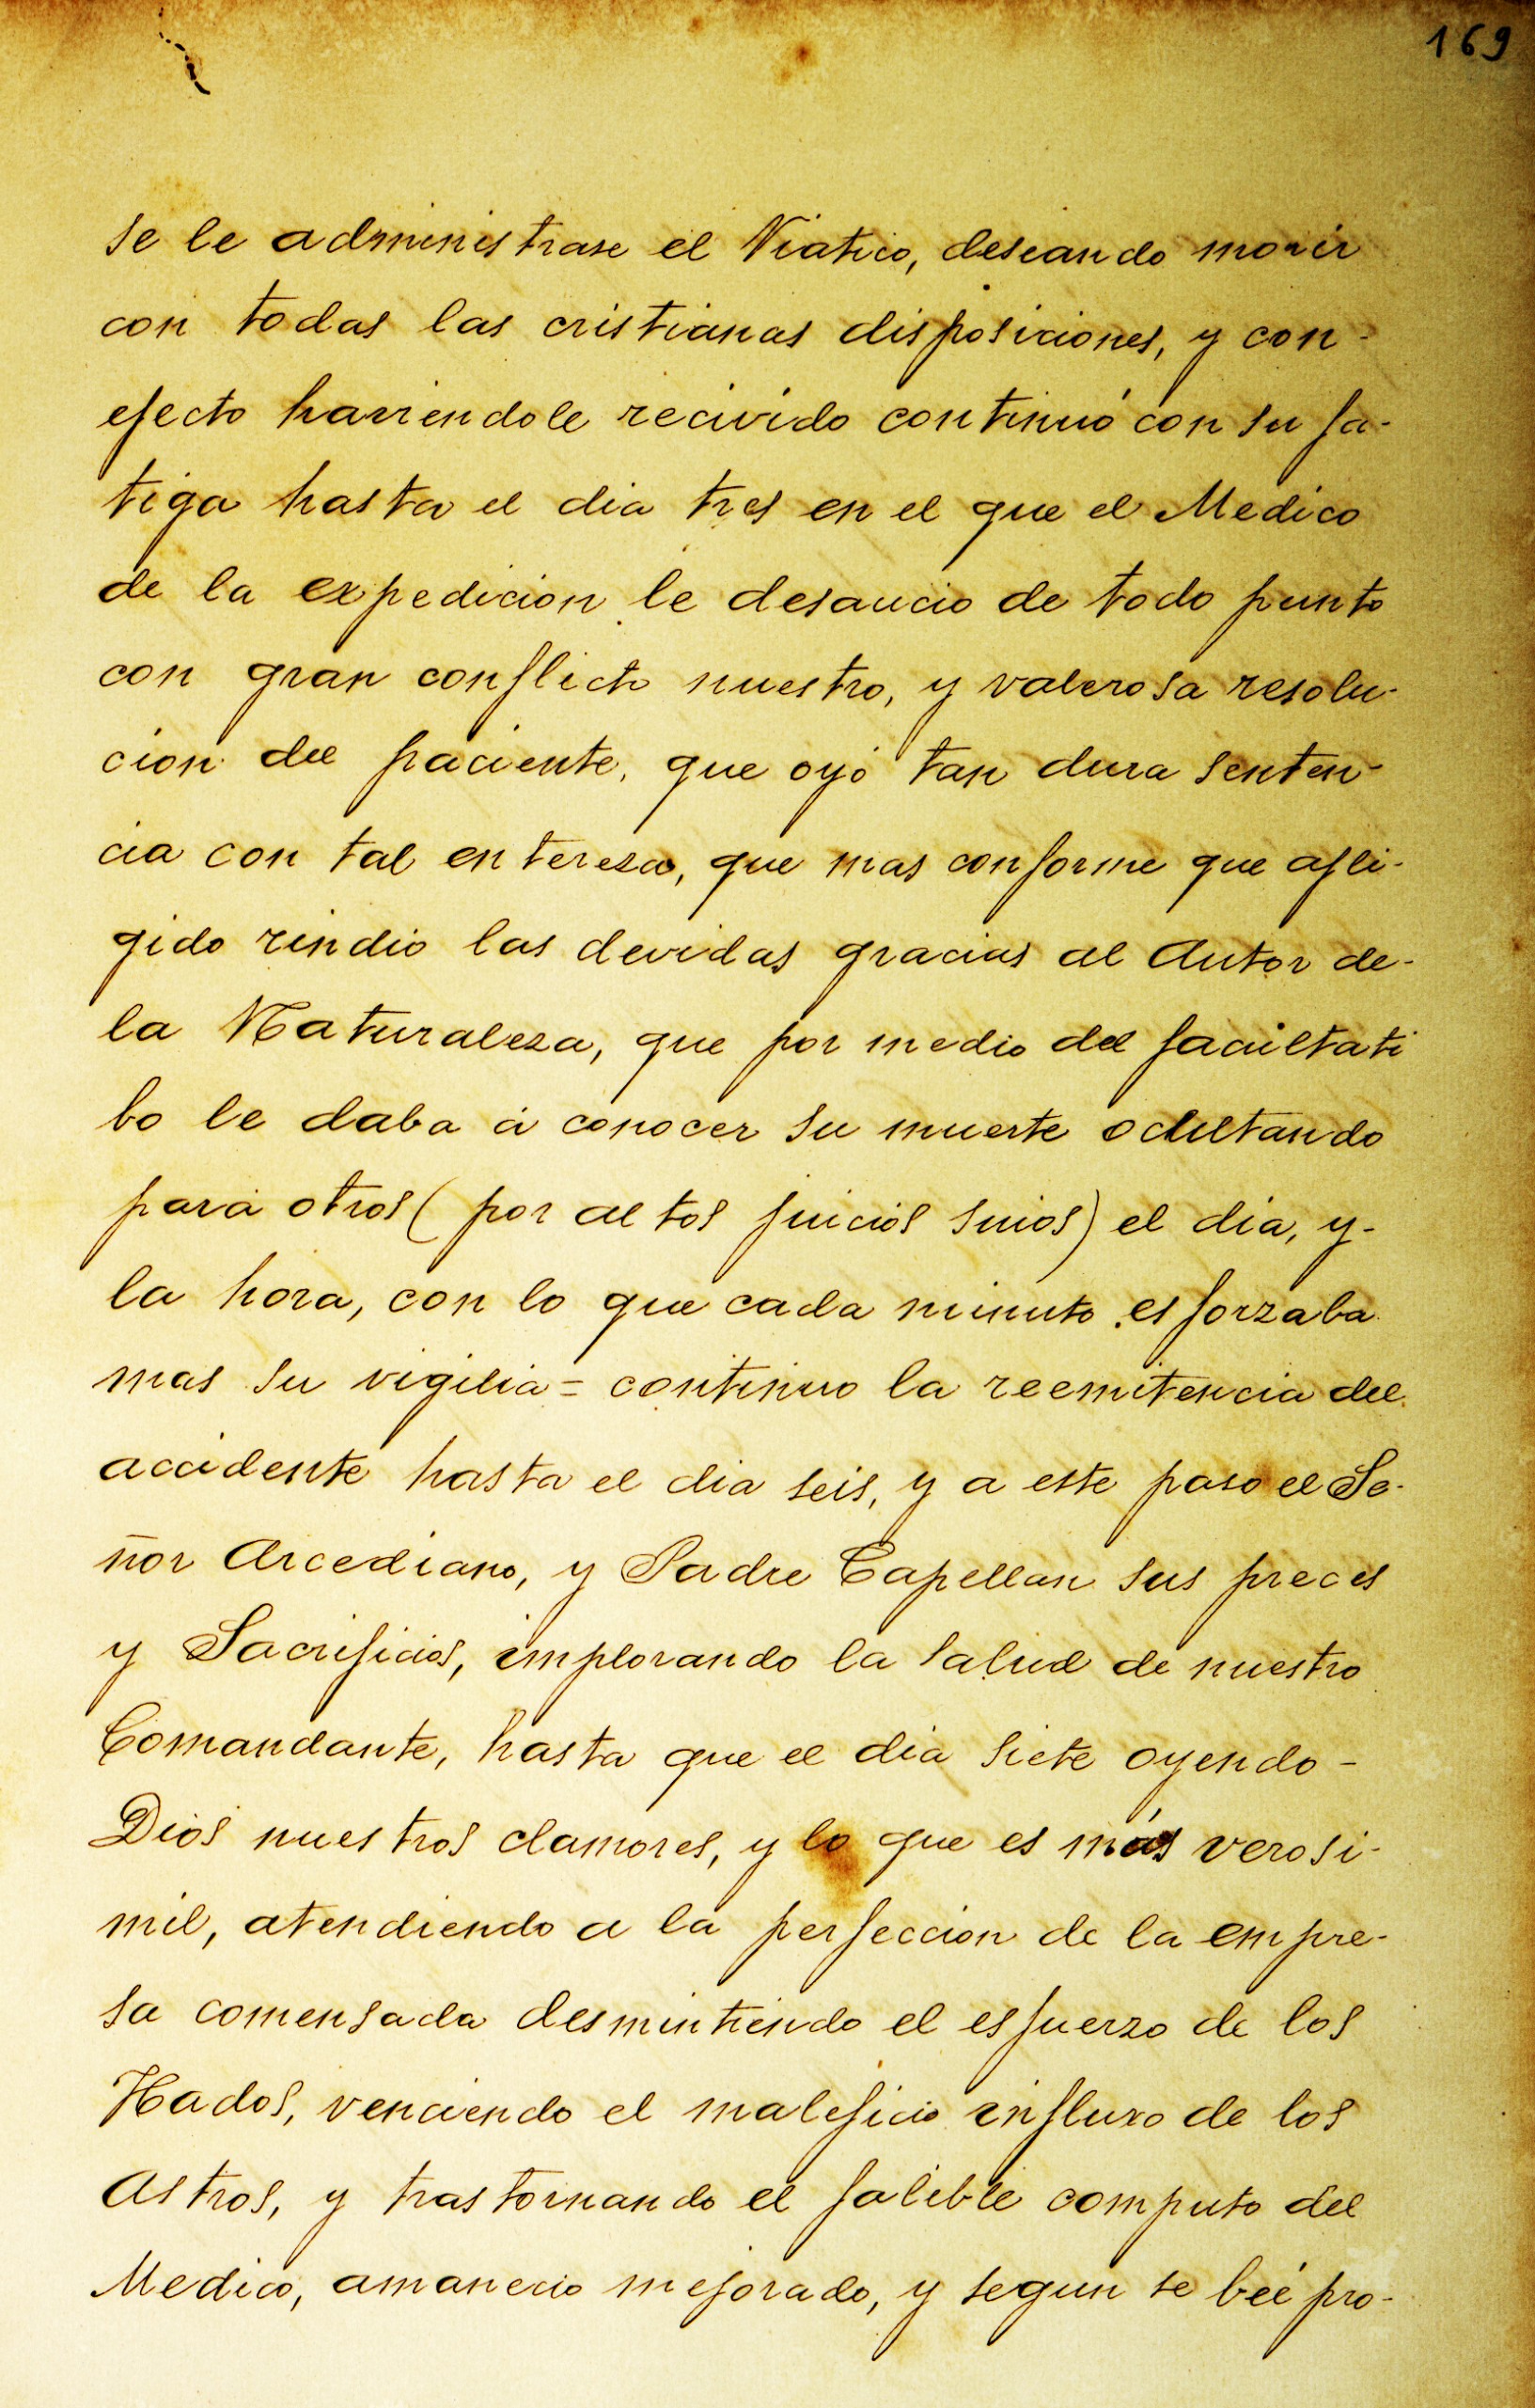 169
se le administrase el Viatico, deseando morir
con todas las cristianas disposiciones, y con-
efecto haviendole recivido continuó con su fa-
tiga hasta el dia tres en el que el Medico
de la expedicion le desaucio de todo punto
con gran conflicto nuestro, y valerosa resolu-
cion del paciente, que oyó tan dura senten-
cia con tal entereza, que mas conforme que afli-
gido rindio las devidas gracias al Autor de-
la Naturaleza, que por medio del facultati
bo le daba á conocer su muerte ocultando
para otros (por altos juicios suios) el dia, y-
la hora, con lo que cada minuto esforzaba
mas su vigilia = continuo la reemitencia del
accidente hasta el dia seis, y a este paso el Se-
ñor Arcediano, y Padre Capellan sus preces
y Sacrificios, implorando la salud de nuestro
Comandante, hasta que el dia siete oyendo-
Dios nuestros clamores, y lo que es más verosi-
mil, atendiendo a la perfeccion de la empre-
sa comensada desmintiendo el esfuerzo de los
Hados, venciendo el maleficio influxo de los
Astros, y trastornando el falible computo del
Medico, amanecio mejorado, y segun se beé pro-